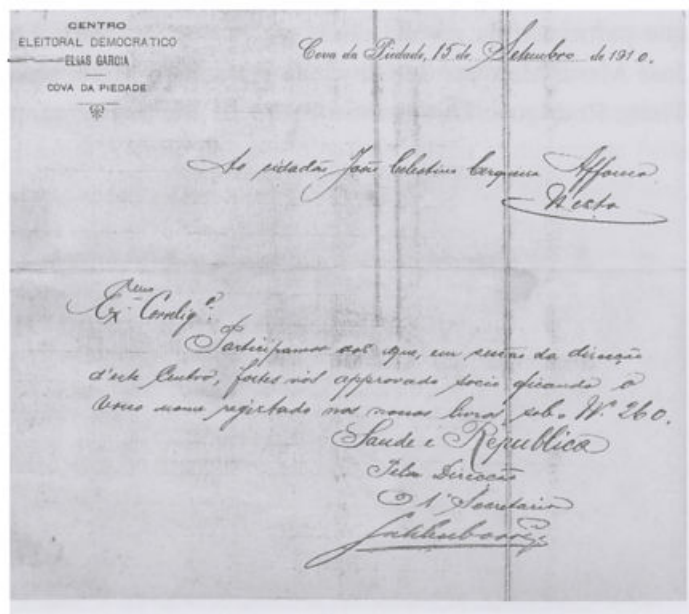 CENTRO
ELEITORAL DEMOCRATICO
ELIAS GARCIA
COVA DA PIEDADE
Cova da Piedade, 15 de Setembro de 1910.
Ao cidadão João Celestino Cerqueira Affonso
Nesta
Exmo. Correligº.
Participamos vos que, em sessão da direcção
d'este Centro, fostes vós approvado socio ficando o
vosso nome registado nos nossos livros sob o Nº 260.
Saude e Republica
Pela Direcção
O 1º Secretario